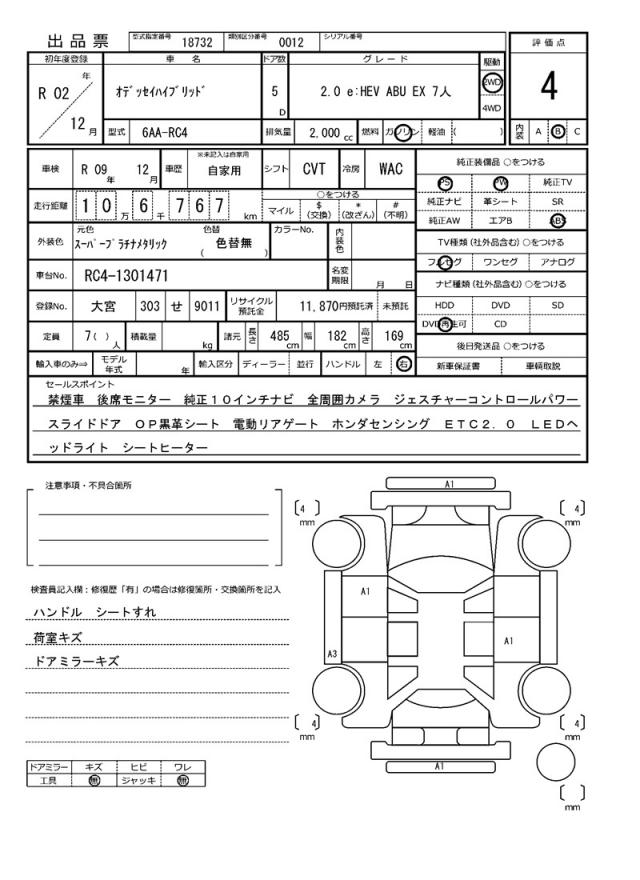 出品票 型式指定番号 18732 類別区分番号 0012 シリアル番号
評価点
4
内装 A B C
初年度登録 車名 ドア数 グレード 駆動
R 02 年 12 月 オデッセイハイブリッド 5 D 2.0 e:HEV ABU EX 7人 2WD 4WD
型式 6AA-RC4 排気量 2,000 cc 燃料 ガソリン 軽油 ( )
車検 R 09 年 12 月 車歴 ※未記入は自家用 自家用 シフト CVT 冷房 WAC
走行距離 1 0 万 6 千 7 6 7 km ○をつける マイル $ (交換) * (改ざん) # (不明)
外装色 元色 スーパープラチナメタリック 色替 ( 色替無 ) カラーNo. 内装色
車台No. RC4-1301471 名変期限 月 日
登録No. 大宮 303 せ 9011 リサイクル預託金 11,870円預託済 未預託
定員 7( ) 人 積載量 kg 諸元 長さ 485 cm 幅 182 cm 高さ 169 cm
輸入車のみ⇒ モデル年式 年 輸入区分 ディーラー 並行 ハンドル 左 右
純正装備品 ○をつける
PS PW 純正TV
純正ナビ 革シート SR
純正AW エアB ABS
TV種類 (社外品含む) ○をつける
フルセグ ワンセグ アナログ
ナビ種類 (社外品含む) ○をつける
HDD DVD SD
DVD再生可 CD
後日発送品 ○をつける
新車保証書 車輌取説
セールスポイント
禁煙車 後席モニター 純正10インチナビ 全周囲カメラ ジェスチャーコントロールパワー
スライドドア OP黒革シート 電動リアゲート ホンダセンシング ETC2.0 LEDヘ
ッドライト シートヒーター
注意事項・不具合箇所
検査員記入欄：修復歴「有」の場合は修復箇所・交換箇所を記入
ハンドル シートすれ
荷室キズ
ドアミラーキズ
ドアミラー キズ ヒビ ワレ
工具 無 ジャッキ 無
A1
[ 4 ] mm [ 4 ] mm
A1
A1
A3
[ 4 ] mm [ 4 ] mm
A1
[ ] mm